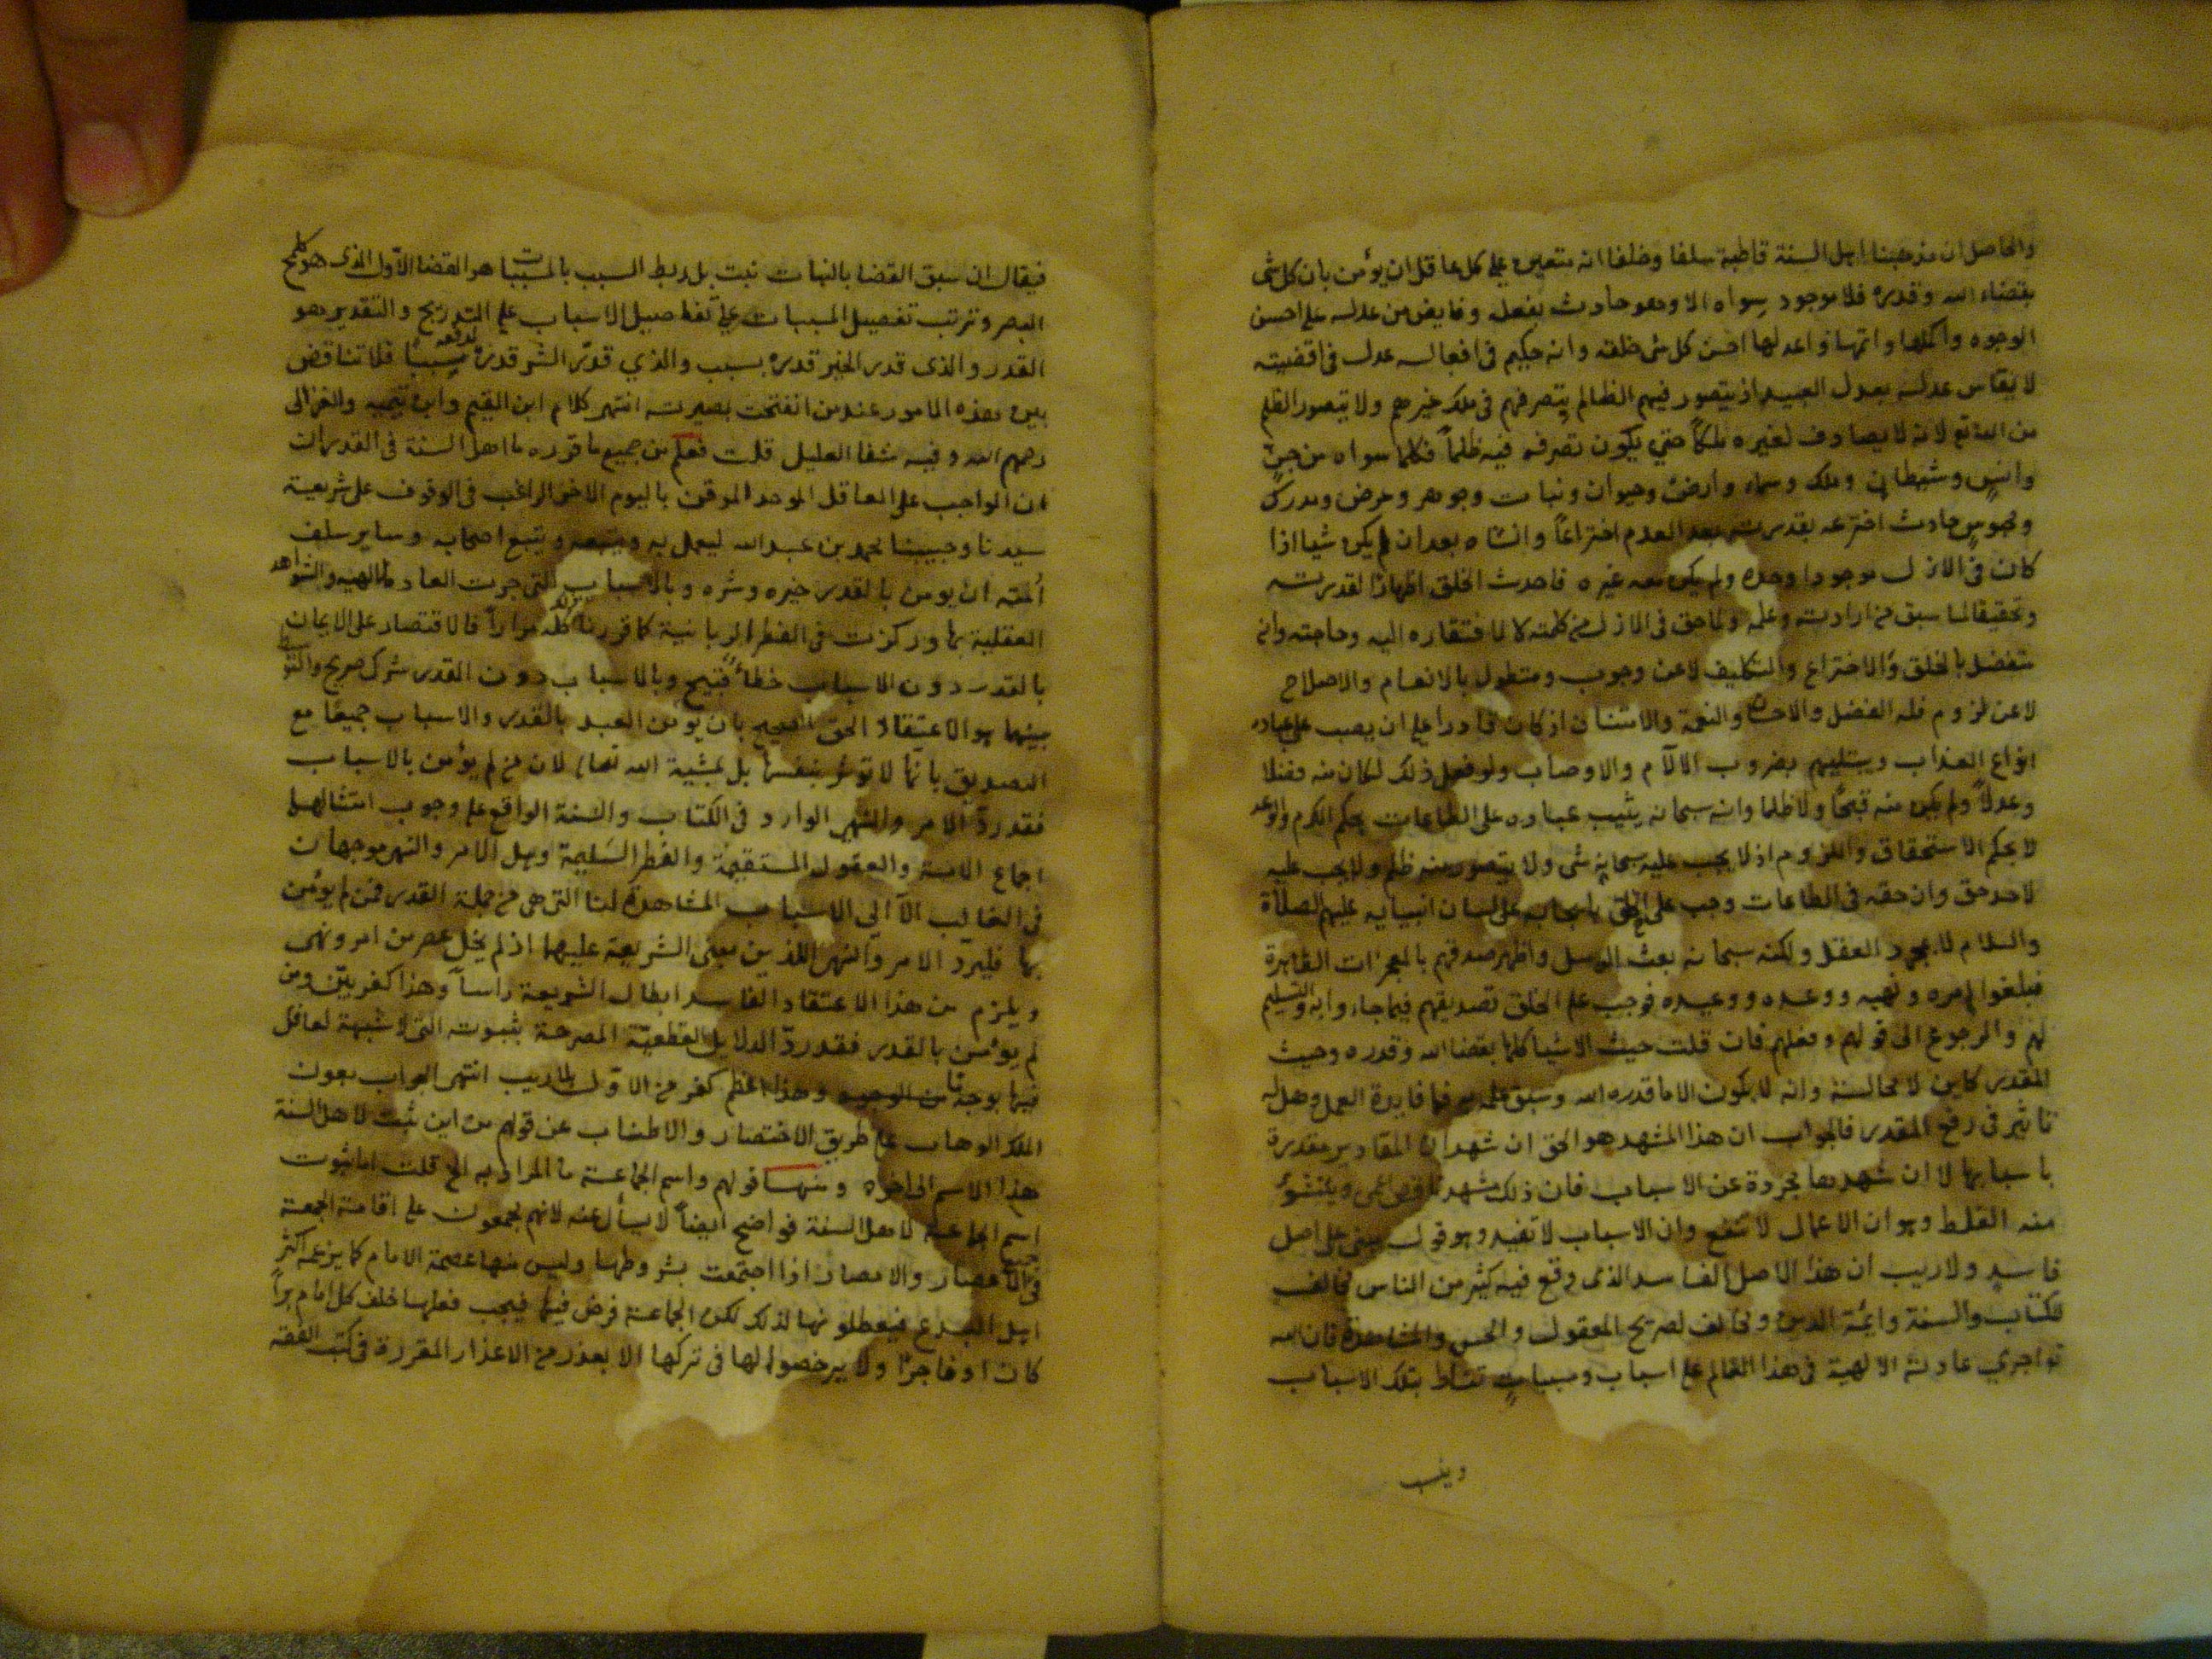 والحاصل ان مذهبنا اهل السنة قاطبة سلفا وخلفا انه متعين على كل عاقل ان يؤمن بان كل شى
بقضاء الله وقدره فلا موجود سواه الا وهو حادث بفعله وفايض من عدله على احسن
الوجوه واكملها واتمها واعدلها احسن كل شى خلقه وانه حكيم فى افعاله عدل فى اقضيته
لا يقاس عدله بعدل العبيد اذ يتصور فيهم الظالم بتصرفهم فى ملك غيرهم ولا يتصور الظلم
من الله تع لانه لا يصادف لغيره ملكاً حتي يكون تصرفه فيه ظلماً فكلما سواه من جنٍ
وانسٍ وشيطان وملك وسماء وارض وحيوان ونبات وجوهر وعرض ومدرك
ومحسوس حادث اخترعه بقدرته بعد العدم اختراعاً وانشاه بعد ان لم يكن شيا اذا
كان فى الازل موجودا وحده ولم يكن معه غيره فاحدث الخلق اظهارا لقدرته
وتحقيقا لما سبق من ارادته وعلمه ولما حق فى الازل من كلمته لا لافتقاره اليه وحاجته وانه
متفضل بالخلق والاختراع والتكليف لا عن وجوب ومتطول بالانعام والاصلاح
لا عن لزوم فله الفضل والاحسان والنعمة والامتنان اذ كان قادرا على ان يصب على عباده
انواع العذاب ويبتليهم بضروب الآلام والاوصاب ولو فعل ذلك لكان منه فضلا
وعدلاً ولم يكن منه قبيحاً ولا ظلما وانه سبحانه يثيب عباده على الطاعات بحكم الكرم والوعد
لا بحكم الاستحقاق واللزوم اذ لا يجب عليه سبحانه شى ولا يتصور منه ظلم ولا يجب عليه
لاحد حق وان حقه فى الطاعات وجب على الخلق بايجابه على لسان انبيايه عليهم الصلاة
والسلام لا بمجرد العقل ولكنه سبحانه بعث الرسل واظهر صدقهم بالمعجزات الظاهرة
فبلغوا امره ونهيه ووعده ووعيده فوجب على الخلق تصديقهم فيما جاءوا به والتسليم
لهم والرجوع الى قولهم وفعلهم فان قلت حيث الاشيا كلها بقضا الله وقدره وحيث
المقدر كاين لا محالة وانه لا يكون الا ما قدره الله وسبق علمه به فما فايدة العمل وهل له
تاثير فى رفع المقدر فالجواب ان هذا المشهد هو الحق ان شهد ان المقادير مقدرة
باسبابها لا ان شهدها مجردة عن الاسباب فان ذلك مشهد ناقص اعمى وينشؤ
منه الغلط وهو ان الاعمال لا تنفع وان الاسباب لا تفيد وهو قول مبنى على اصل
فاسد ولا ريب ان هذا الاصل الفاسد الذى وقع فيه كثير من الناس مخالف
للكتاب والسنة وائمة الدين ومخالف لصريح المعقول والحس والمشاهدة فان الله
تع اجري عادته الالهية فى هذا العالم على اسباب ومسببات تناط بتلك الاسباب
وينسب
فيقال ان سبق القضا بالنبات نبت بل ربط السبب بالمسببات هو القضا الاول الذى هو كلمح
البصر وترتب تفصيل المسببات على تفاصيل الاسباب على التدريج والتقدير هو
القدر والذى قدر الخير قدره بسبب والذي قدّر الشر قدره لدفعه سبباً فلا تناقض
بين هذه الامور عند من انفتحت بصيرته انتهى كلام ابن القيم وابن تيميه والغزالى
رحمهم الله وفيه شفا العليل قلت فعلم من جميع ما قرره ما اهل السنة فى القدر ان
ان الواجب على العاقل الموحد الموقن باليوم الاخر الراغب فى الوقوف على شريعة
سيدنا وحبيبنا محمد بن عبد الله ليعمل به ويتبعه ويتبع اصحابه وساير سلف
أمته ان يومن بالقدر خيره وشره وبالاسباب التى جرت العاد الالهيه والشواهد
العقلية بها وركزت فى الفطر الربانية كما قررنا لك مراراً فالاقتصار على الايمان
بالقدر دون الاسباب خطأ قبيح وبالاسباب دون القدر شرك صريح والتوسط
بينهما هو الاعتقاد الحق الصحيح بان يومن العبد بالقدر والاسباب جميعًا مع
التصديق بانها لا توثر بنفسها بل بمشية الله تعالى لان من لم يؤمن بالاسباب
فقد ردّ الامر والنهى الوارد فى الكتاب والسنة الواقع على وجوب امتثالهما
اجماع الامة والعقول المستقيمة والفطر السليمة وهل الامر والنهى موجهان
فى الغالب الا الى الاسباب المشاهدة لنا التى هى من جملة القدر فمن لم يؤمن
بها فليردّ الامر والنهى اللذين مبنى الشريعة عليهما اذ لم يخل عصر من امر ونهى
ويلزم من هذا الاعتقاد الفاسد ابطال الشريعة راساً وهذا كفر بيّن ومن
لم يؤمن بالقدر فقد ردّ الدلايل القطعيّة المصرحة بثبوته التى لا شبهة لعاقل
فيها بوجه من الوجوه وهذا اعظم كفر من الاول بلا ريب انتهى الجواب بعون
الملك الوهاب على طريق الاختصار والاطناب عن قولهم من اين ثبت لاهل السنة
هذا الاسم الى اخره ومنها قولهم واسم الجماعة ما المراد به الخ قلت اما ثبوت
اسم الجماعة لاهل السنة فواضح ايضاً لا يسأل عنه لانهم يجمعون على اقامة الجمعة
فى جميع الاعصار والامصار اذا اجتمعت بشروطها وليس منها عصمة الامام كما يزعمه اكثر
اهل البدع فيعطلونها لذلك لكن الجماعة فرض فيها فيجب فعلها خلف كل امام براً
كان او فاجرًا ولا يرخصوا لها فى تركها الا بعذر من الاعذار المقررة فى كتب الفقه